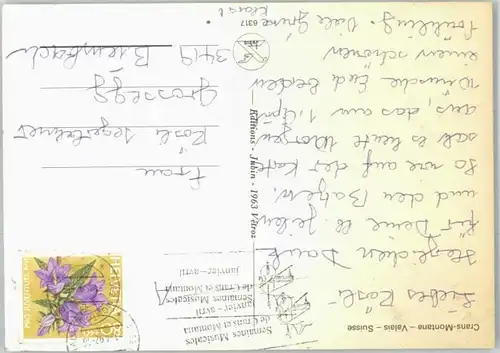 Crans-Montana - Valais - Suisse
Liebes Rösli
Herzlichen Dank
für Deine lb. Zeilen
und den Batzen.
So wie auf der Karte
sah es heute Morgen
aus, das am 1. April
wünsche Euch beiden
einen schönen
Frühling. Viele Grüsse
Klärli
6317
Editions - Jubin - 1963 Vétroz
Semaines Musicales
de Crans et Montana
janvier - avril
Semaines Musicales
de Crans et Montana
janvier - avril
HELVETIA
80
PRO JUVENTUTE
Frau
Rösli
Grossegg
3419 Biembach